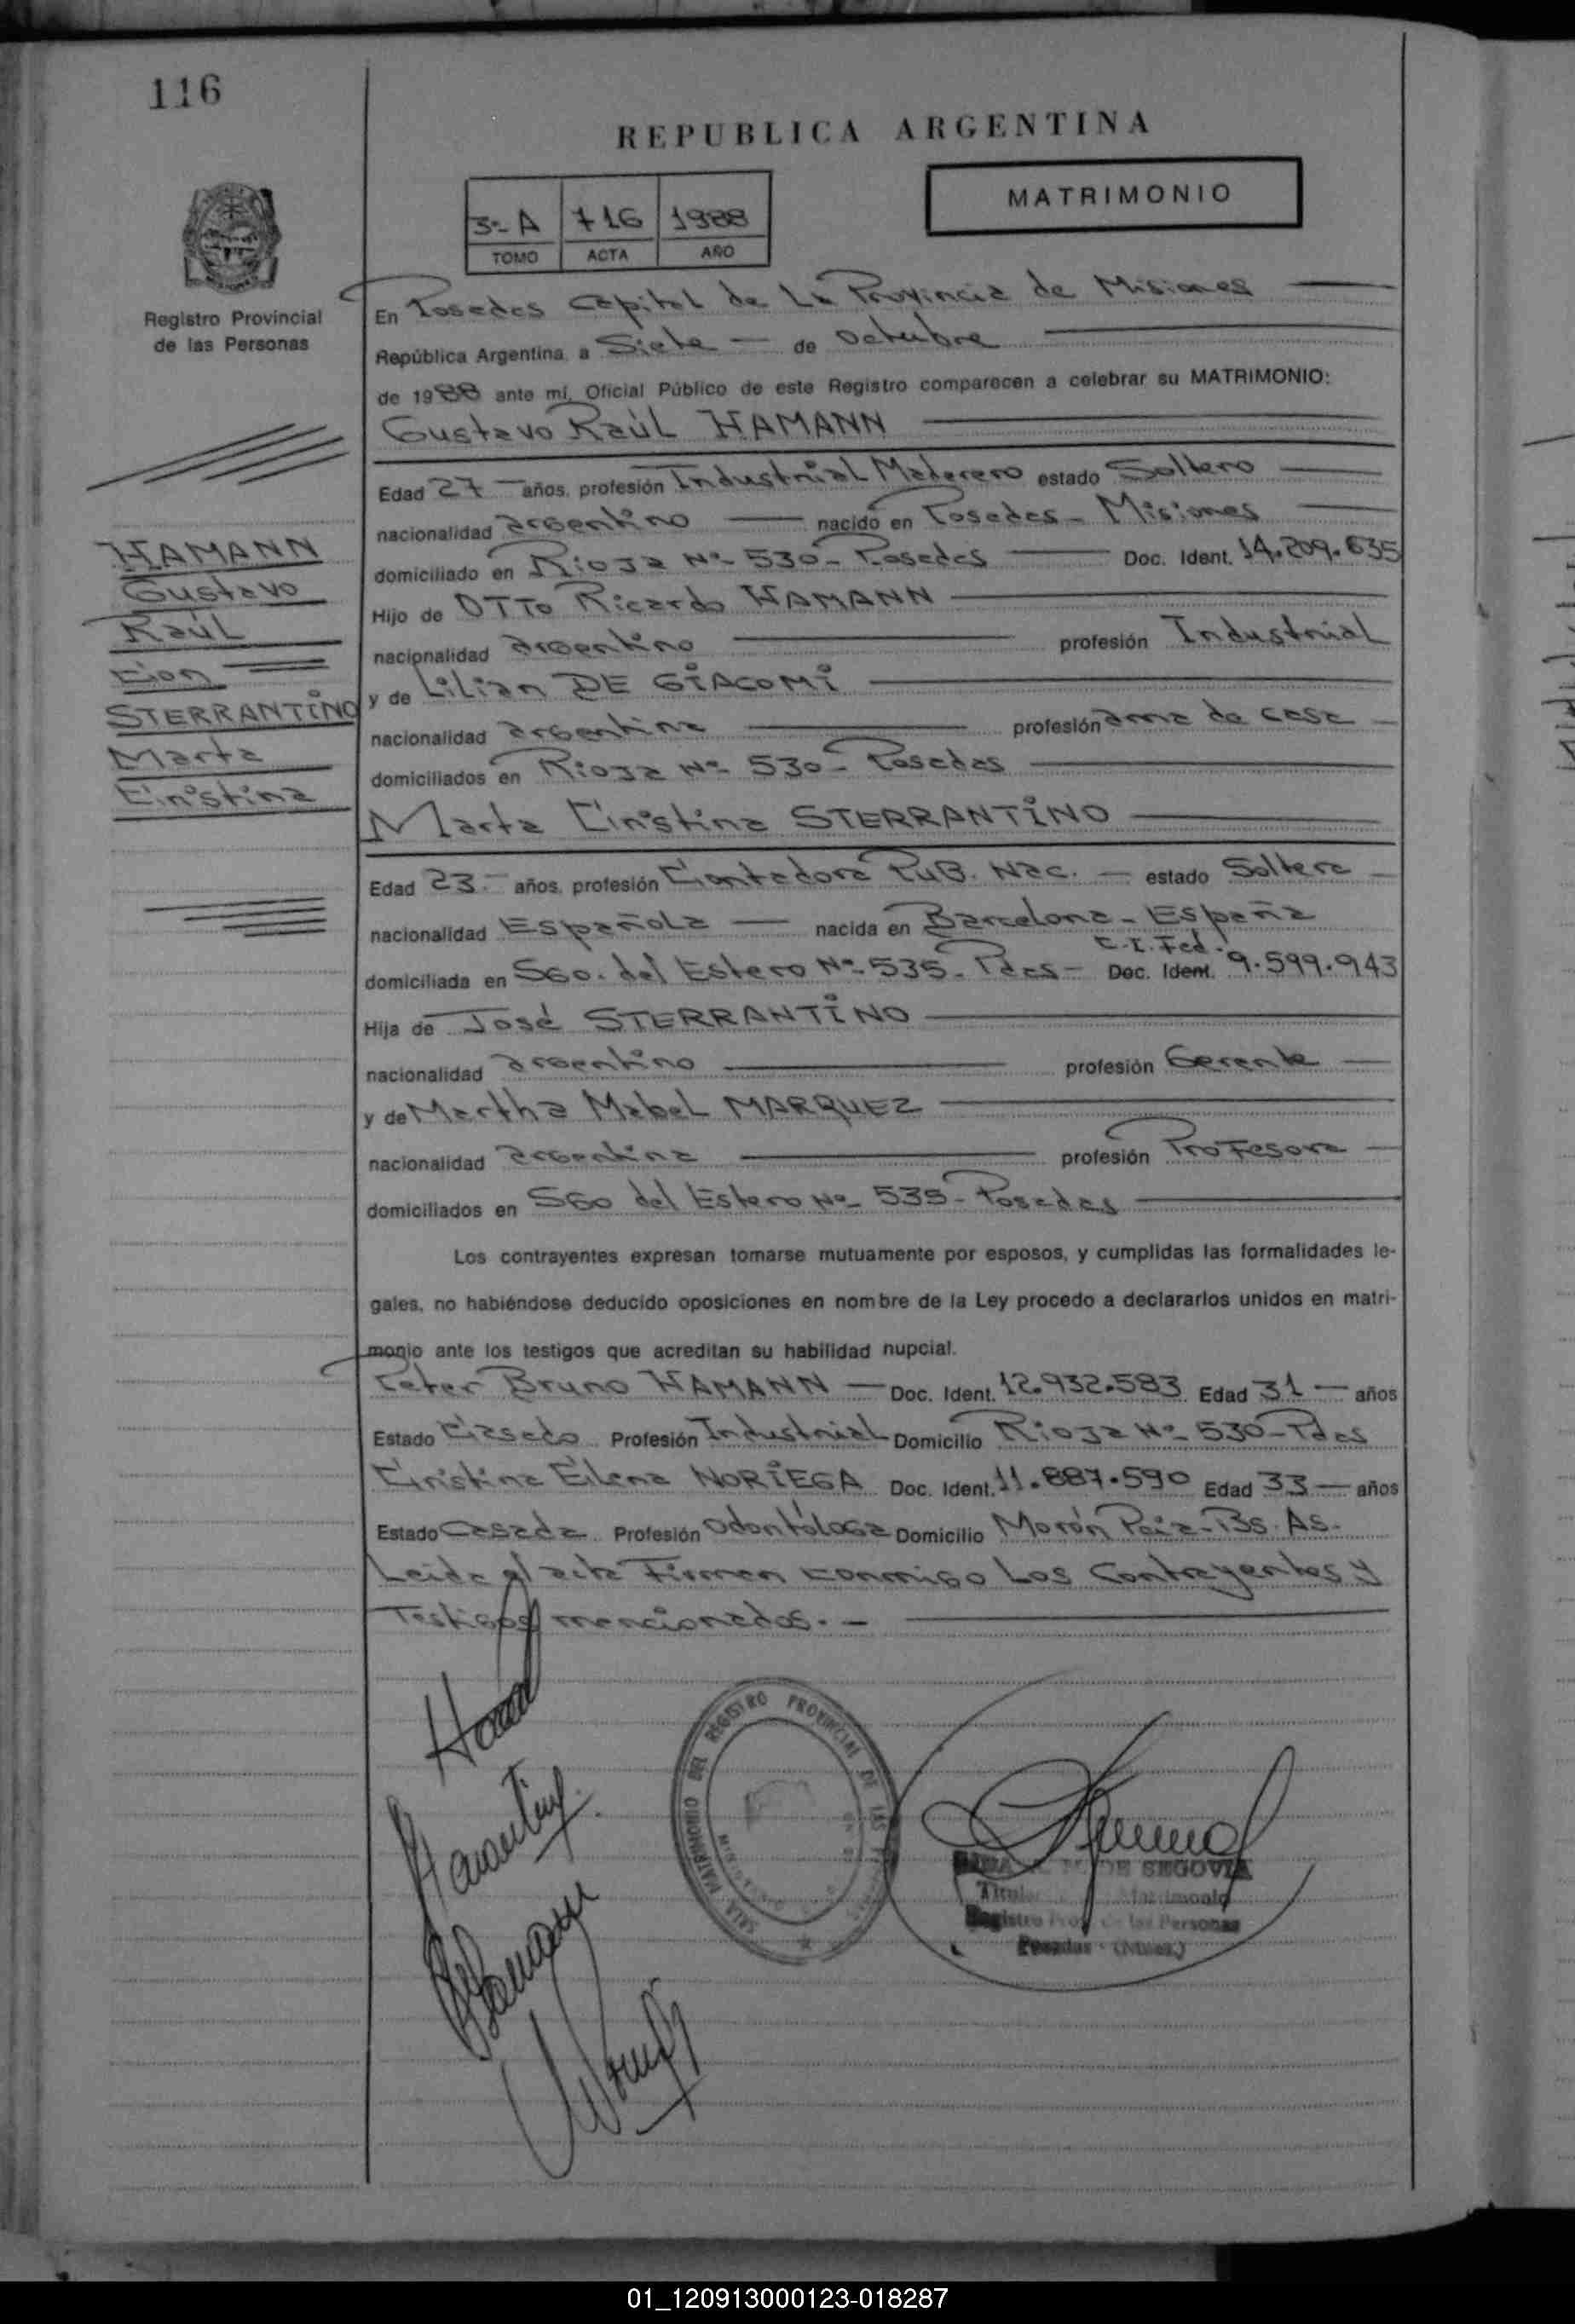 116
REPUBLICA ARGENTINA
MATRIMONIO
3º- A 716 1988
TOMO ACTA AÑO
Registro Provincial
de las Personas
En Posadas Capital de La Provincia de Misiones
República Argentina, a Siete de Octubre
de 1988 ante mí, Oficial Público de este Registro comparecen a celebrar su MATRIMONIO:
Gustavo Raúl HAMANN
Edad 27 años, profesión Industrial Maderero estado Soltero
nacionalidad argentino nacido en Posadas - Misiones
domiciliado en Rioja Nº- 530- Posadas Doc. Ident. 14.209.635
Hijo de OTTO Ricardo HAMANN
nacionalidad argentino profesión Industrial
y de Lilian DE GIACOMI
nacionalidad argentina profesión ama de casa
domiciliados en Rioja Nº- 530- Posadas
Marta Cristina STERRANTINO
Edad 23.- años, profesión Contadora PUB. Nac. estado Soltera
nacionalidad Española nacida en Barcelona - España
C.I. Fed.
domiciliada en SGO. del Estero Nº- 535- Pdas- Doc. Ident. 9.599.943
Hija de José STERRANTINO
nacionalidad argentino profesión Gerente
y de Martha Mabel MARQUEZ
nacionalidad argentina profesión Profesora
domiciliados en SGO del Estero Nº- 535- Posadas
Los contrayentes expresan tomarse mutuamente por esposos, y cumplidas las formalidades le-
gales, no habiéndose deducido oposiciones en nombre de la Ley procedo a declararlos unidos en matri-
monio ante los testigos que acreditan su habilidad nupcial.
Peter Bruno HAMANN Doc. Ident. 12.932.583 Edad 31 años
Estado Casado Profesión Industrial Domicilio Rioja Nº- 530- Pdas
Cristina Elena NORIEGA Doc. Ident. 11.887.590 Edad 33 años
Estado Casada Profesión Odontóloga Domicilio Morón Pcia- Bs. As.
Leida el acta Firman conmigo Los Contrayentes y
Testigos mencionados. -
HAMANN
Gustavo
Raúl
con
STERRANTINO
Marta
Cristina
SALA MATRIMONIO DEL REGISTRO PROVINCIAL DE LAS
DE SEGOVIA
Titular Matrimonio
Registro Prov. de las Personas
Posadas - (Mnes.)
01_120913000123-018287